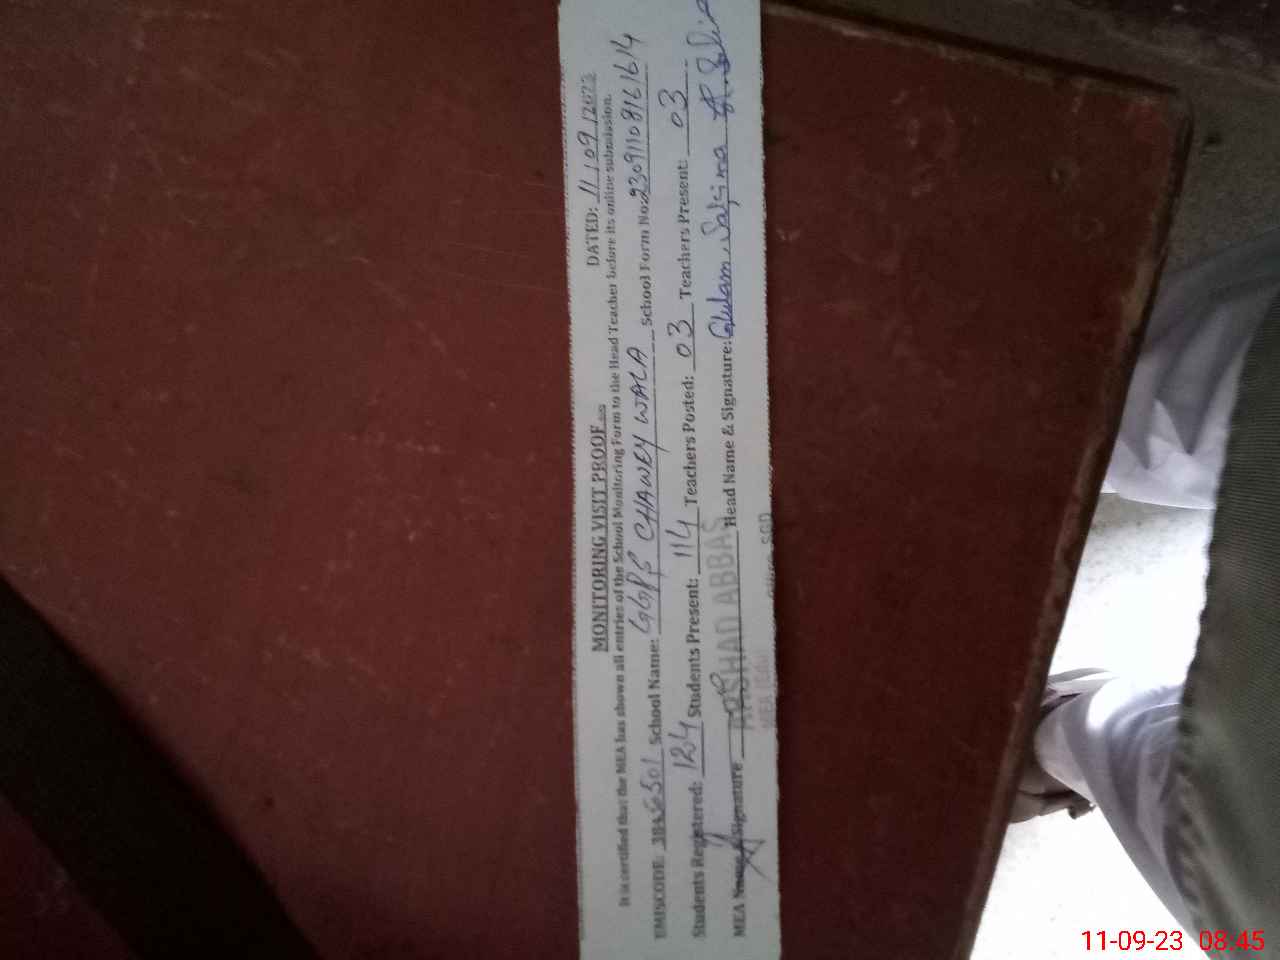 MONITORING VISIT PROOF
DATED: 11/09/2023
It is certified that the MEA has shown all entries of the School Monitoring Form to the Head Teacher before its online submission.
EMISCODE: School Name: GGPS CHAWEY WALA School Form No: 23091108161614
Students Registered: 134 Students Present: 114 Teachers Posted: 03 Teachers Present: 03
MEA Name & Signature ARSHAD ABBAS Head Name & Signature: Ghulam Sakina
MEA
11-09-23 08:45